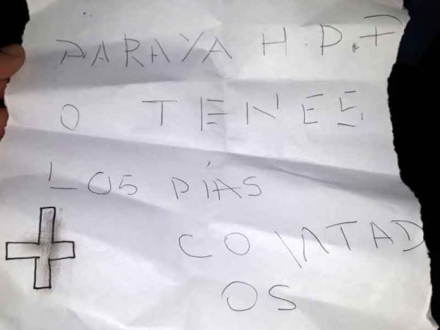 PARAYA H.D.P
O TENES
LOS DÍAS
CONTAD
OS